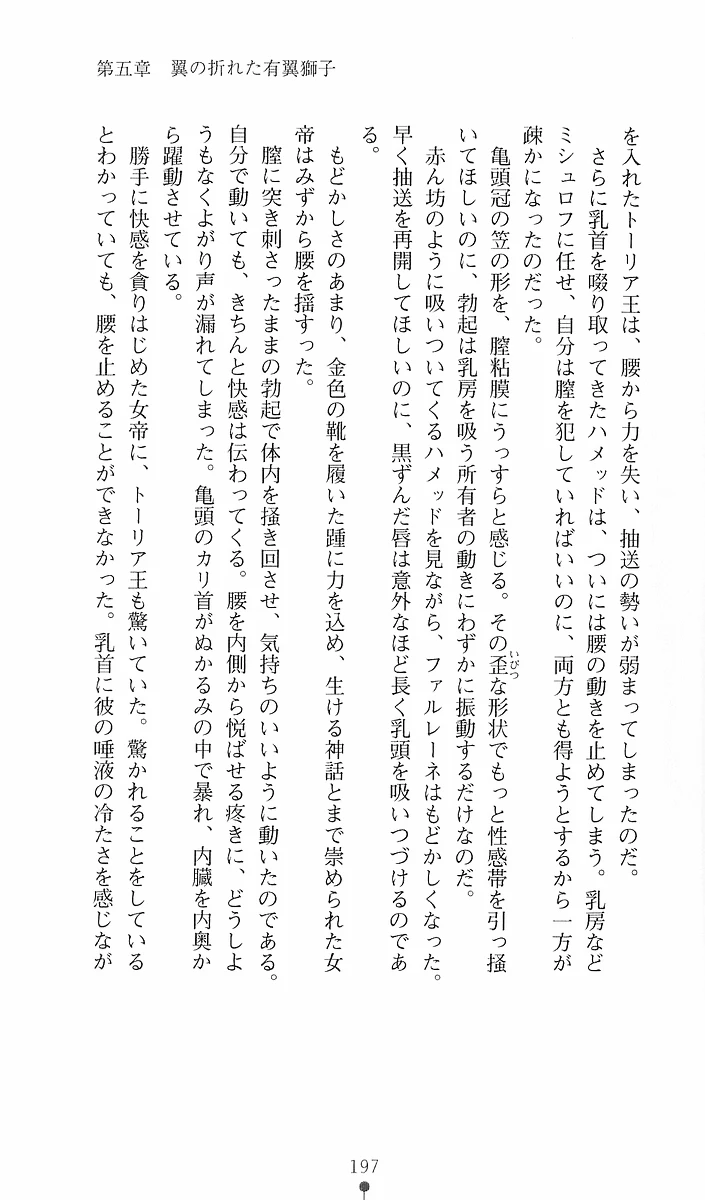 第五章　翼の折れた有翼獅子
を入れたトーリア王は、腰から力を失い、抽送の勢いが弱まってしまったのだ。
さらに乳首を啜り取ってきたハメッドは、ついには腰の動きを止めてしまう。乳房など
ミシュロフに任せ、自分は膣を犯していればいいのに、両方とも得ようとするから一方が
疎かになったのだった。
亀頭冠の笠の形を、膣粘膜にうっすらと感じる。その歪な形状でもっと性感帯を引っ掻
いびつ
いてほしいのに、勃起は乳房を吸う所有者の動きにわずかに振動するだけなのだ。
赤ん坊のように吸いついてくるハメッドを見ながら、ファルレーネはもどかしくなった。
早く抽送を再開してほしいのに、黒ずんだ唇は意外なほど長く乳頭を吸いつづけるのであ
る。
もどかしさのあまり、金色の靴を履いた踵に力を込め、生ける神話とまで崇められた女
帝はみずから腰を揺すった。
膣に突き刺さったままの勃起で体内を掻き回させ、気持ちのいいように動いたのである。
自分で動いても、きちんと快感は伝わってくる。腰を内側から悦ばせる疼きに、どうしよ
うもなくよがり声が漏れてしまった。亀頭のカリ首がぬかるみの中で暴れ、内臓を内奥か
ら躍動させている。
勝手に快感を貪りはじめた女帝に、トーリア王も驚いていた。驚かれることをしている
とわかっていても、腰を止めることができなかった。乳首に彼の唾液の冷たさを感じなが
197